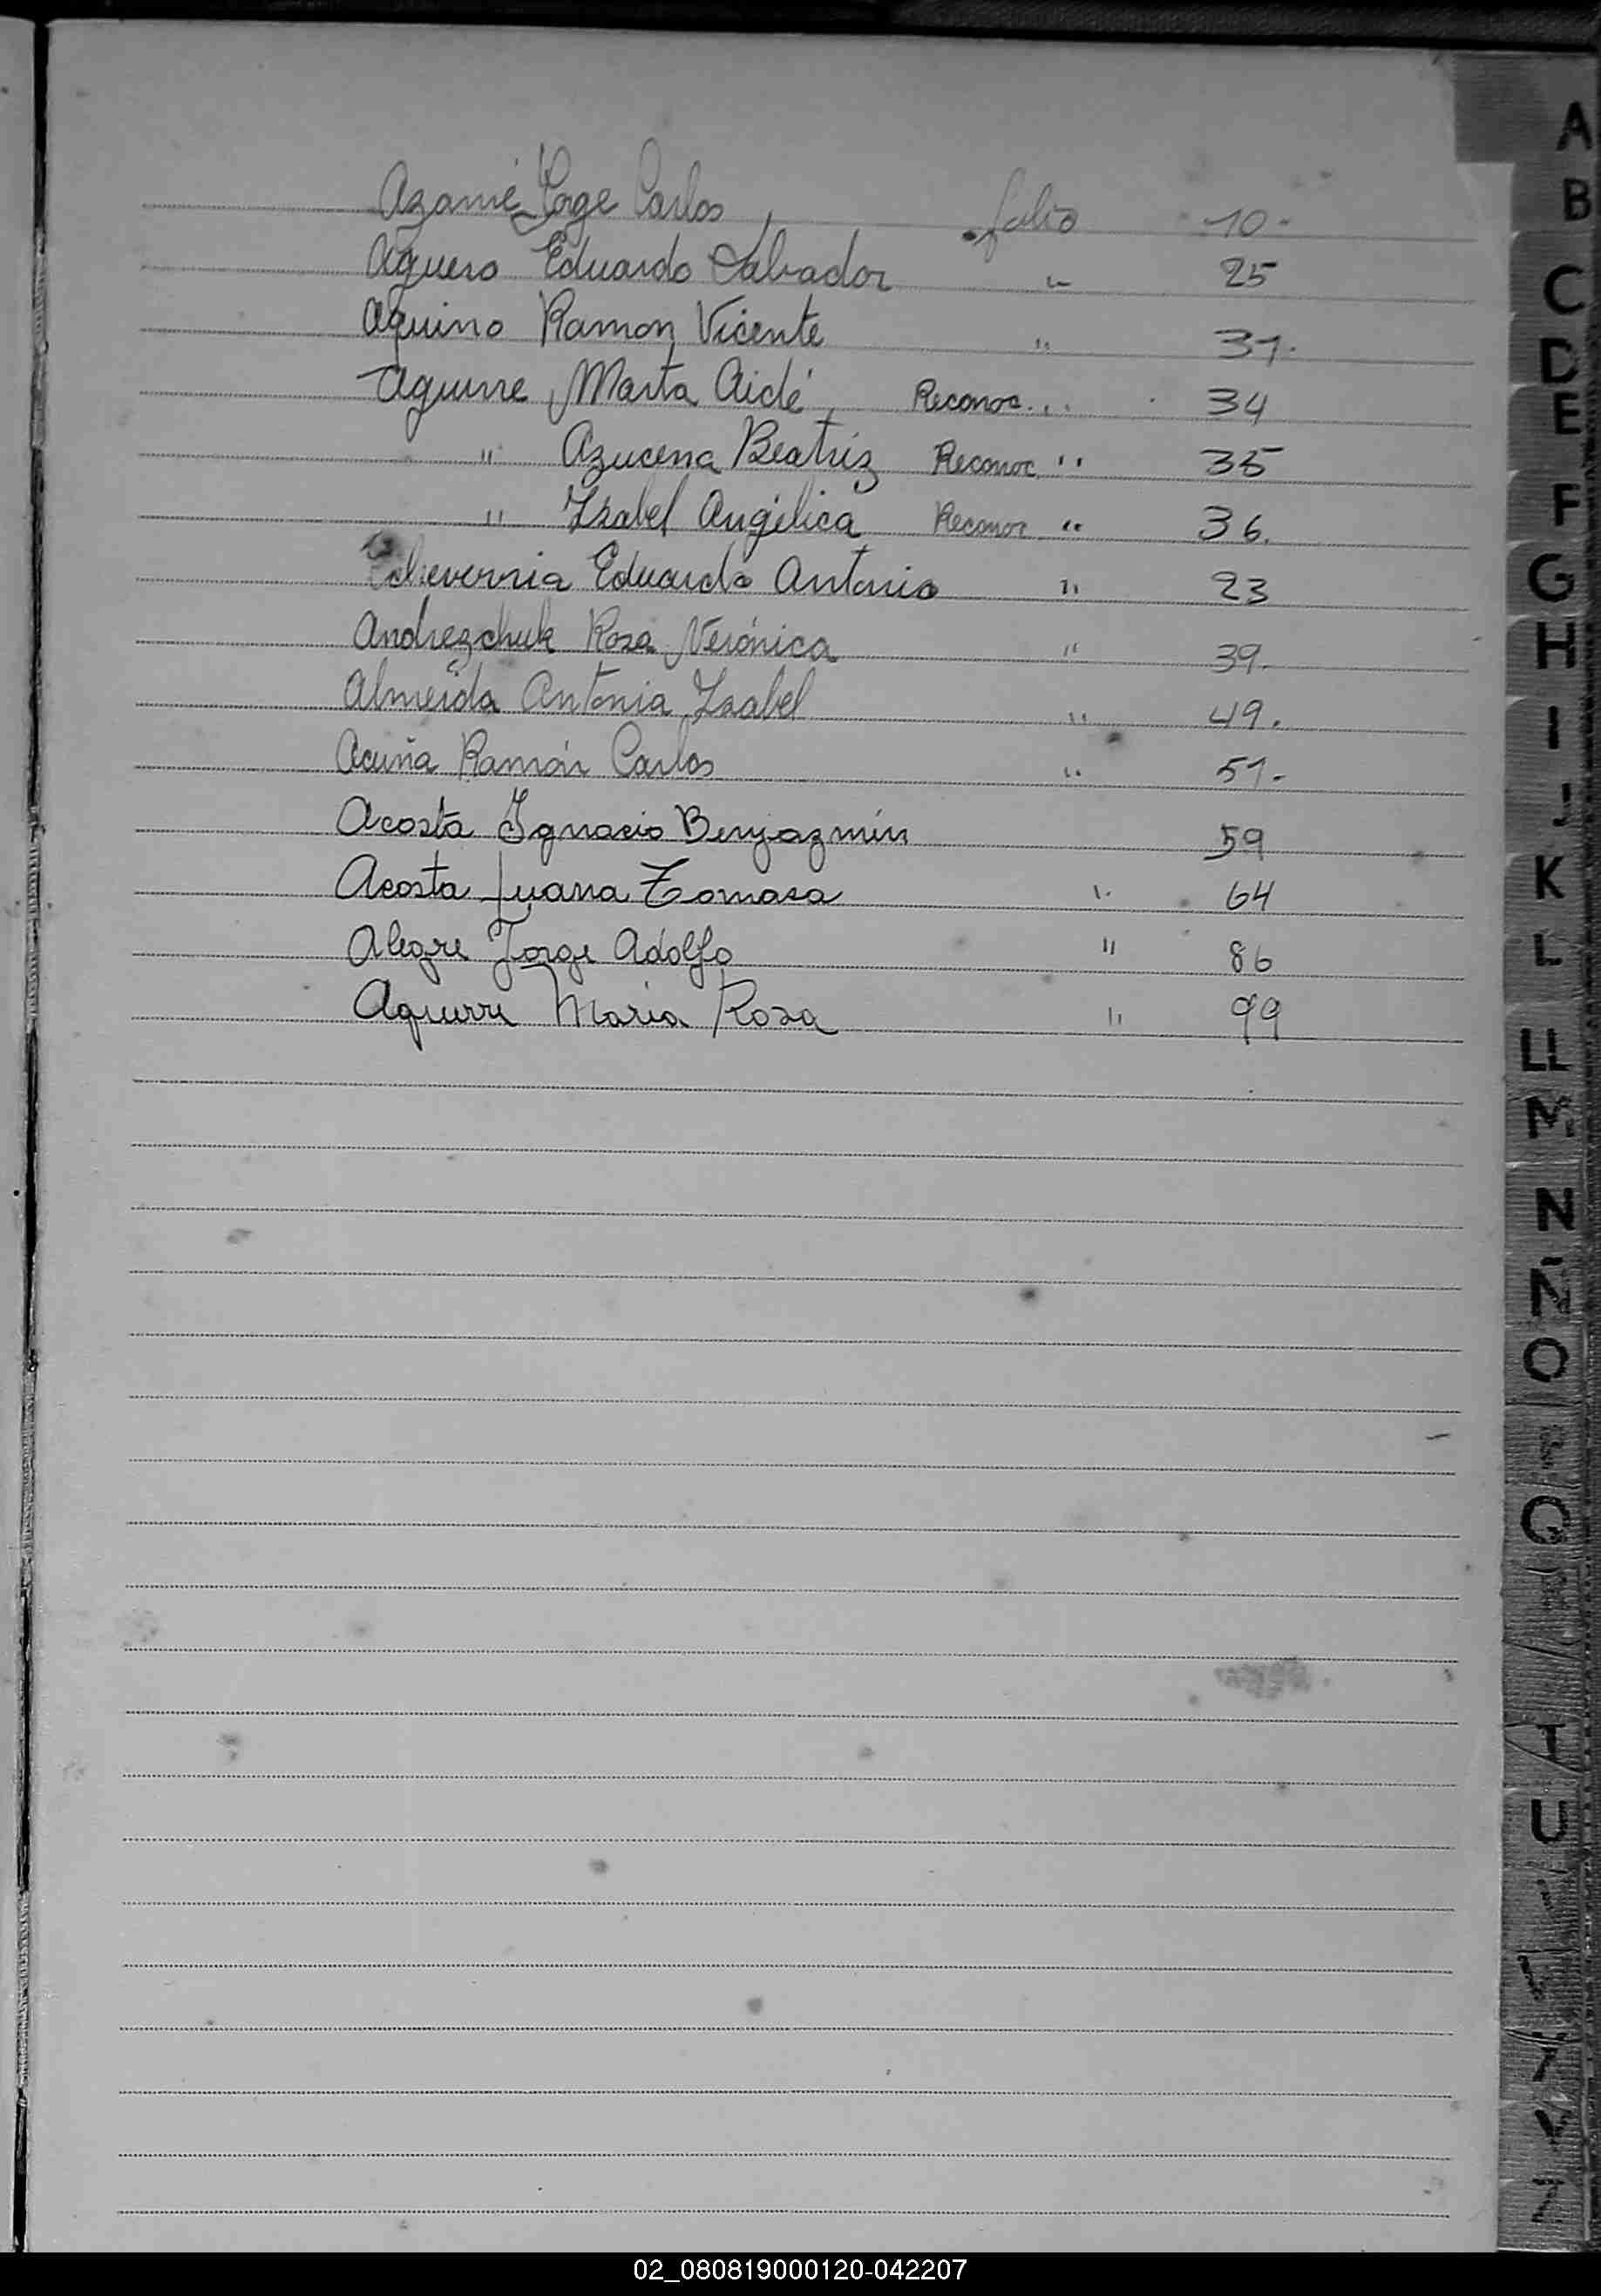 Azamé Jorge Carlos folio 10.-
Aguero Eduardo Salvador " 25
Aquino Ramon Vicente " 31.
Aguirre, Marta Aidé, Reconoc. " 34
" Azucena Beatriz Reconoc. " 35
" Isabel Angélica Reconoc " 36.
Echeverria Eduardo Antonio " 23
Andrezchuk Rosa Verónica " 39.
Almeida Antonia Isabel " 49.
Acuña Ramón Carlos " 51.-
Acosta Ignacio Benjazmín 59
Acosta Juana Tomasa " 64
Alegre Jorge Adolfo " 86
Aguirre Maria Rosa " 99
A
B
C
D
E
F
G
H
I
J
K
L
LL
M
N
Ñ
O
Q
T
U
02_080819000120-042207